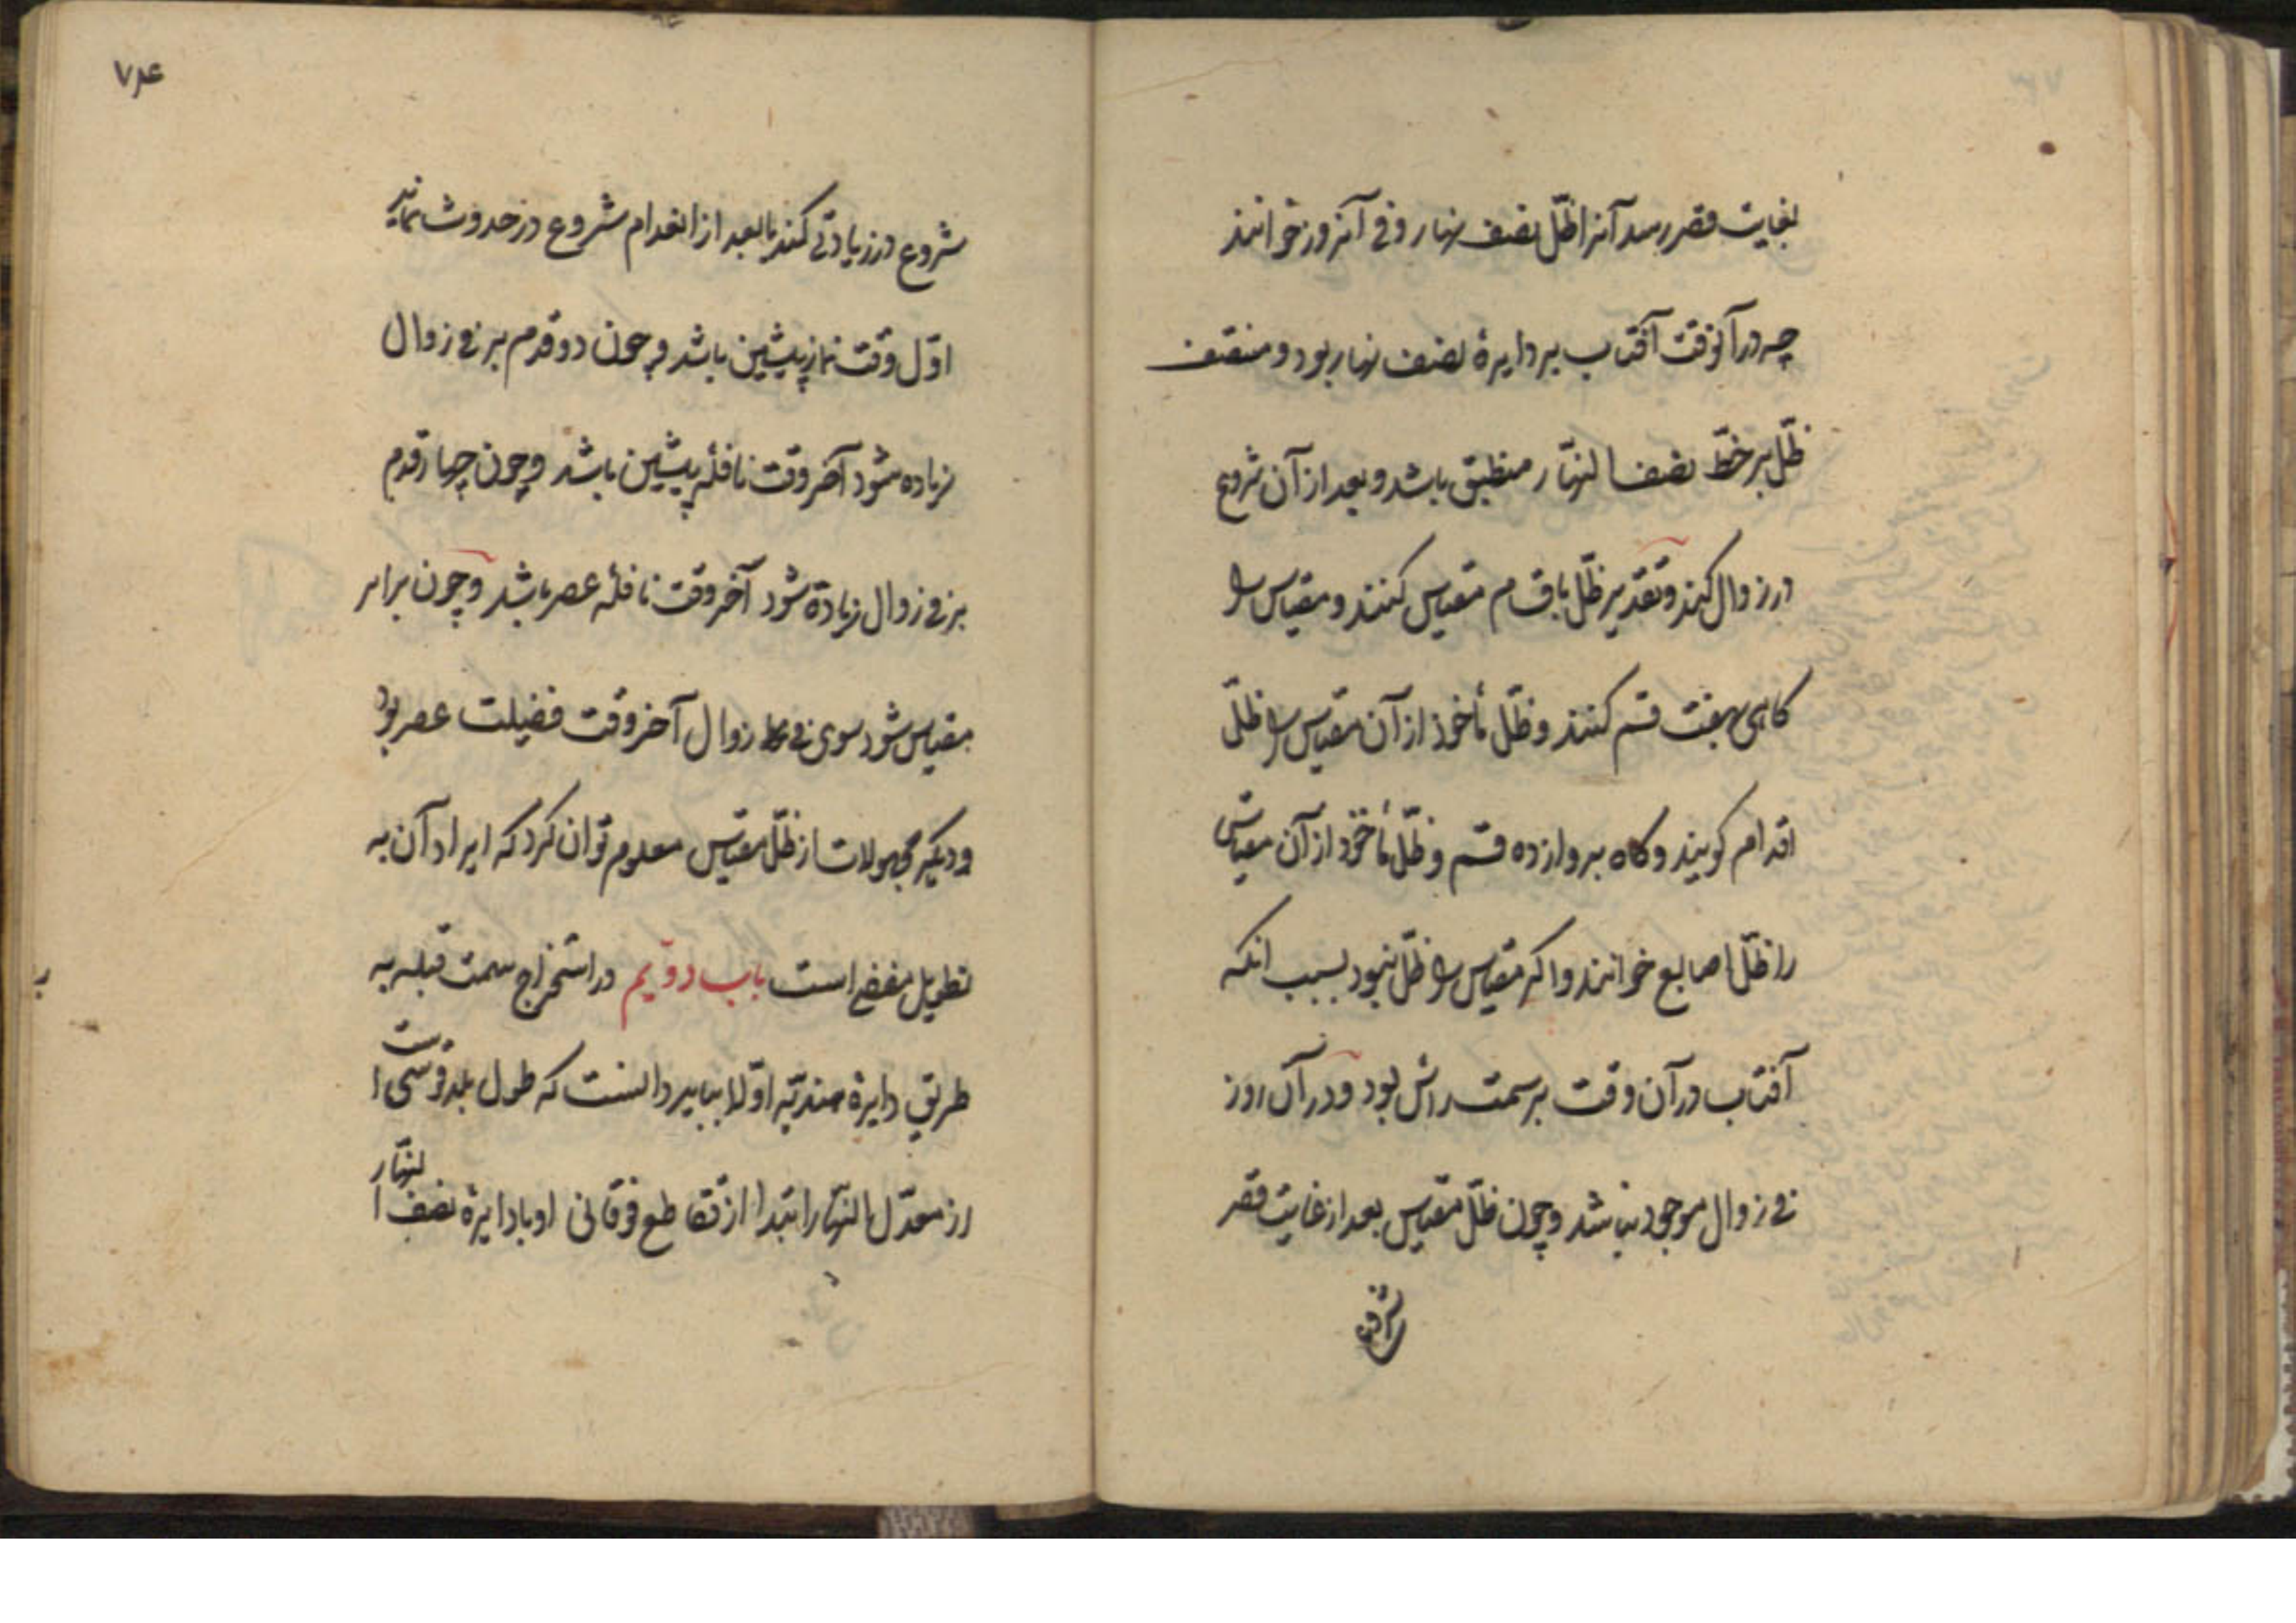 بغایت قصر رسد آنرا ظلّ نصف نهار وفی آنروز خوانند
چه در آنوقت آفتاب بر دایرهٔ نصف نهار بود و منتصف
ظلّ بر خطّ نصف النهّار منطبق باشد و بعد از آن شروع
در زوال کند و تقدیر ظلّ باقسام مقیاس کنند و مقیاس را
کاهی بهفت قسم کنند و ظلّ مأخوذ از آن مقیاس را ظلّ
اقدام کویند و کاه بدوازده قسم و ظلّ مأخوذ از آن مقیاس
را ظلّ اصابع خوانند و اکر مقیاس را ظلّ نبود بسبب انکه
آفتاب در آن وقت بر سمت رأس بود و در آن روز
فی زوال موجود نباشد و چون ظلّ مقیاس بعد از غایت قصر
شروع
۷۴
شروع در زیادتی کند یا بعد از انعدام شروع در حدوث نماید
اوّل وقت نماز پیشین باشد و چون دو قدم بر فی زوال
زیاده شود آخر وقت نافلهٔ پیشین باشد و چون چهار قدم
بر فی زوال زیاده شود آخر وقت نافلهٔ عصر باشد و چون برابر
مقیاس شود سوی فی زوال آخر وقت فضیلت عصر بود
و دیکر مجهولات از ظلّ مقیاس معلوم توان کرد که ایراد آن به
تطویل مفضی است باب دویّم در استخراج سمت قبله به
طریق دایرهٔ هندیّه اوّلا بباید دانست که طول بلد قوسی است
از معدّل النهّار ابتدا از تقاطع فوقانی او با دایرهٔ نصف النهّار